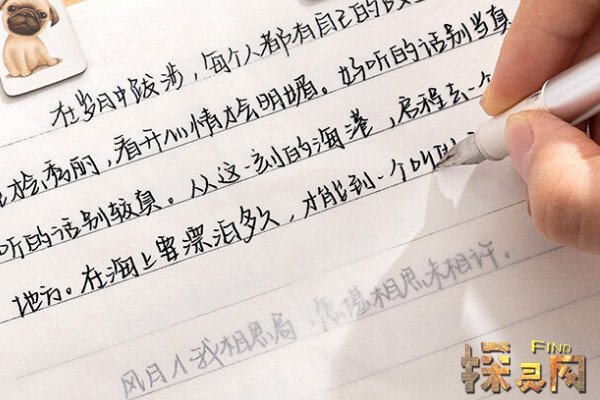 在岁月中跋涉，每个人都有自己的
看开心情才会明媚。好听的话别当真
听的话别较真。从这一刻的海港，启程去一个
地方。在海上要漂泊多久，才能到一个叫
风月入我相思局，怎堪相思未相许。
FIND
探灵网